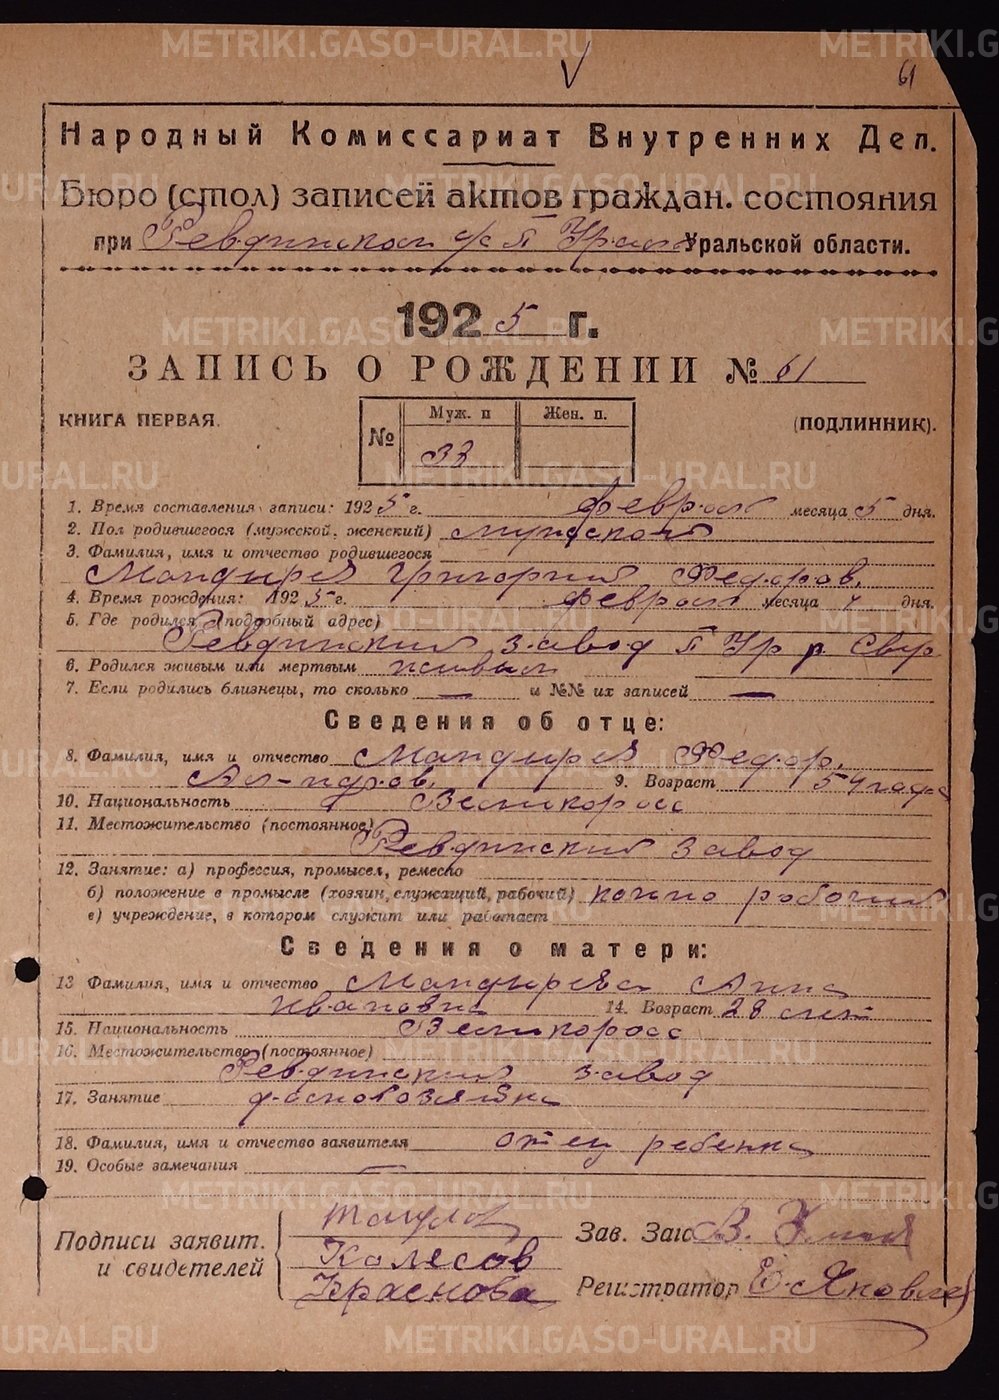 METRIKI.GASO-URAL.RU
61
Народный Комиссариат Внутренних Дел.
Бюро (стол) записей актов граждан. состояния
при Ревдинском Уральской области.
1925 г.
ЗАПИСЬ О РОЖДЕНИИ № 61
КНИГА ПЕРВАЯ.
№ Муж. п Жен. п.
33
(ПОДЛИННИК).
1. Время составления записи: 1925 г. февраля месяца 5 дня.
2. Пол родившегося (мужской, женский) мужской
3. Фамилия, имя и отчество родившегося
Григорий Федоров.
4. Время рождения: 1925 г. февраля месяца 4 дня.
5. Где родился (подробный адрес)
Ревдинский завод
6. Родился живым или мертвым живым
7. Если родились близнецы, то сколько — и №№ их записей —
Сведения об отце:
8. Фамилия, имя и отчество Федор.
Ал-ндров. 9. Возраст 54 года
10. Национальность Великоросс
11. Местожительство (постоянное)
Ревдинский завод
12. Занятие: а) профессия, промысел, ремесло
б) положение в промысле (хозяин, служащий, рабочий) конно рабочий
в) учреждение, в котором служит или работает
Сведения о матери:
13 Фамилия, имя и отчество Анна
Ивановна 14. Возраст 28 лет
15. Национальность Великоросс
16. Местожительство (постоянное)
Ревдинский завод
17. Занятие домохозяйка
18. Фамилия, имя и отчество заявителя отец ребенка
19. Особые замечания —
Подписи заявит.
и свидетелей
Колесов
Краснова
Зав. Загс В.
Регистратор Е. Яковлев